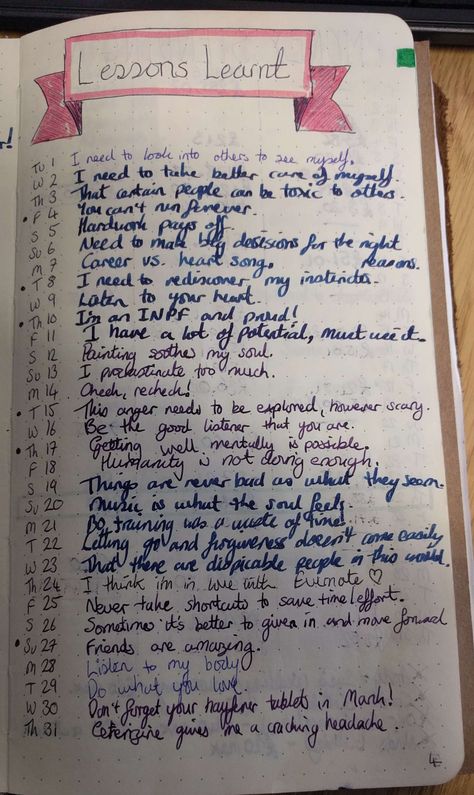 Lessons Learnt
Tu 1 I need to look into others to see myself.
W 2 I need to take better care of myself.
Th 3 That certain people can be toxic to others.
F 4 You can't run forever.
S 5 Hardwork pays off.
Su 6 Need to make big descisions for the right reasons.
M 7 Career vs. heart song.
T 8 I need to rediscover my instincts.
W 9 Listen to your heart.
Th 10 I'm an INPF and proud!
F 11 I have a lot of potential, must use it.
S 12 Painting soothes my soul.
Su 13 I procrastinate too much.
M 14 Check, recheck!
T 15 This anger needs to be explored, however scary.
W 16 Be the good listener that you are.
Th 17 Getting well mentally is possible.
F 18 Humanity is not doing enough.
S 19 Things are never bad as what they seem.
Su 20 Music is what the soul feels.
M 21 training was a waste of time!
T 22 Letting go and forgiveness doesn't come easily
W 23 That there are dispicable people in this world.
Th 24 I think im in love with Evernote ♡
F 25 Never take shortcuts to save time/effort.
S 26 Sometimes it's better to given in and move forward
Su 27 Friends are amazing.
M 28 Listen to my body
T 29 Do what you love.
W 30 Don't forget your hayfever tablets in March!
Th 31 Ceterizine gives me a craching headache.
4